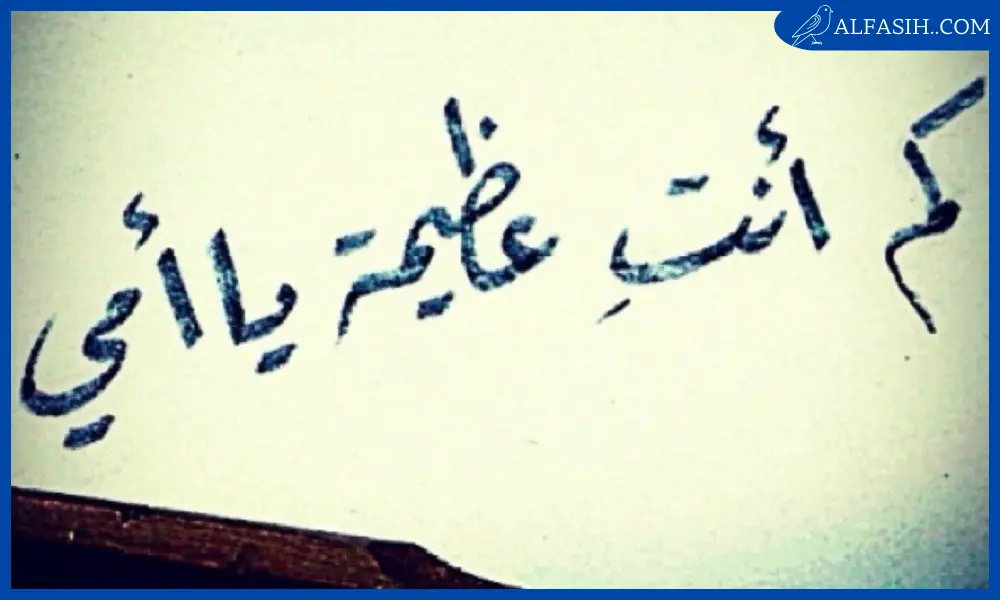 ALFASIH.COM
كم أنتِ عظيمة يا أمي